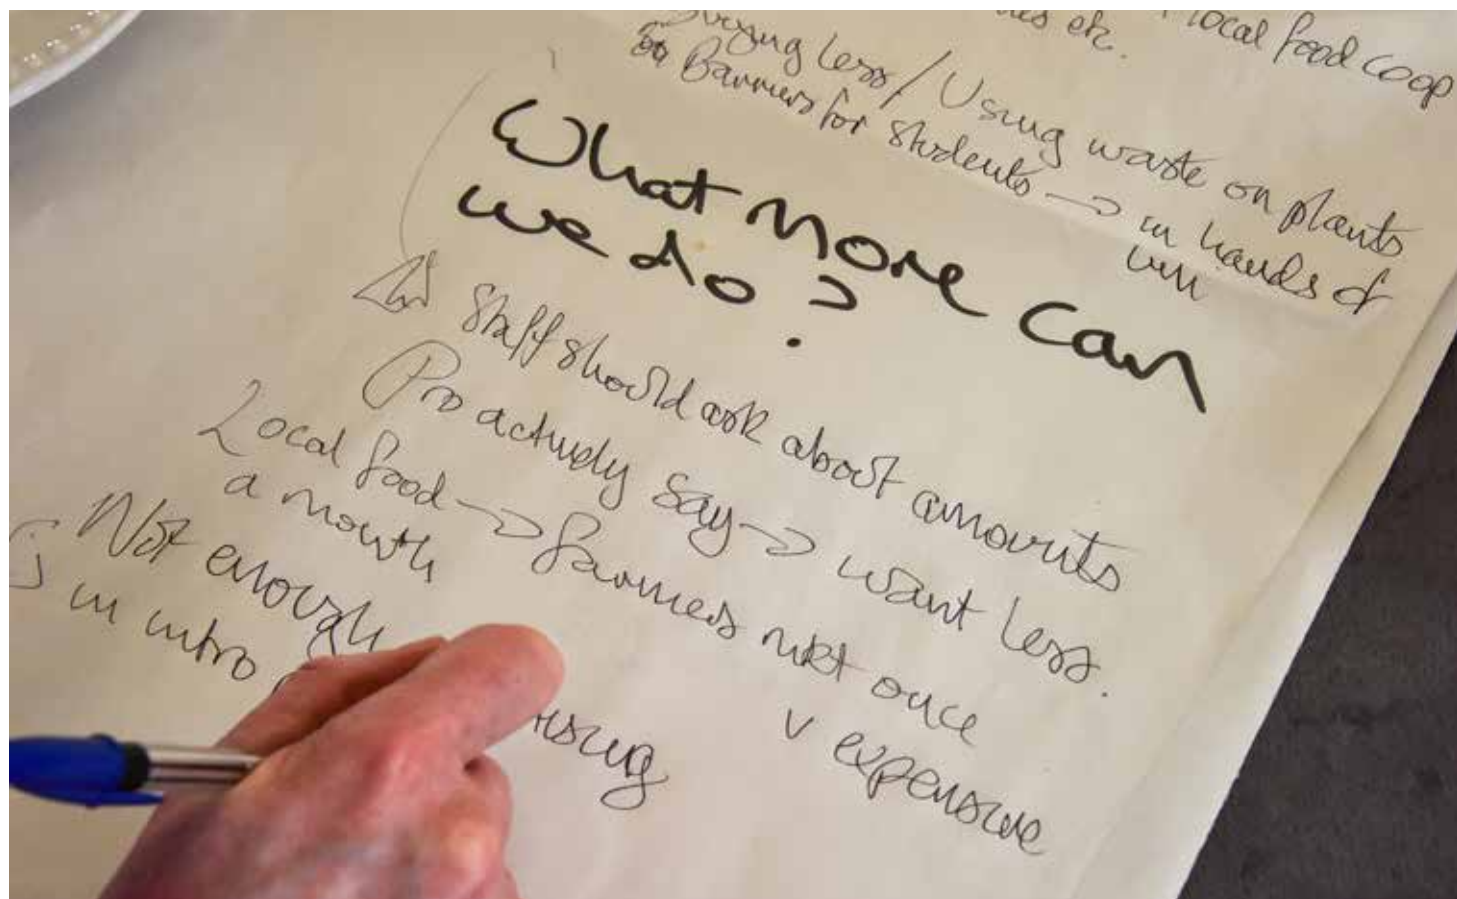 local food coop
etc.
Buying less / Using waste on plants
Barriers for students → in hands of
uni
What more can
we do?
Staff should ask about amounts
Proactively say → want less.
Local food → farmers mkt once
a month
v expensive
Not enough
in intro